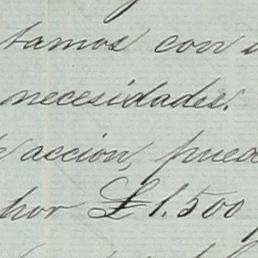 tamos con
necesidades.
acción, pued
por £1.500